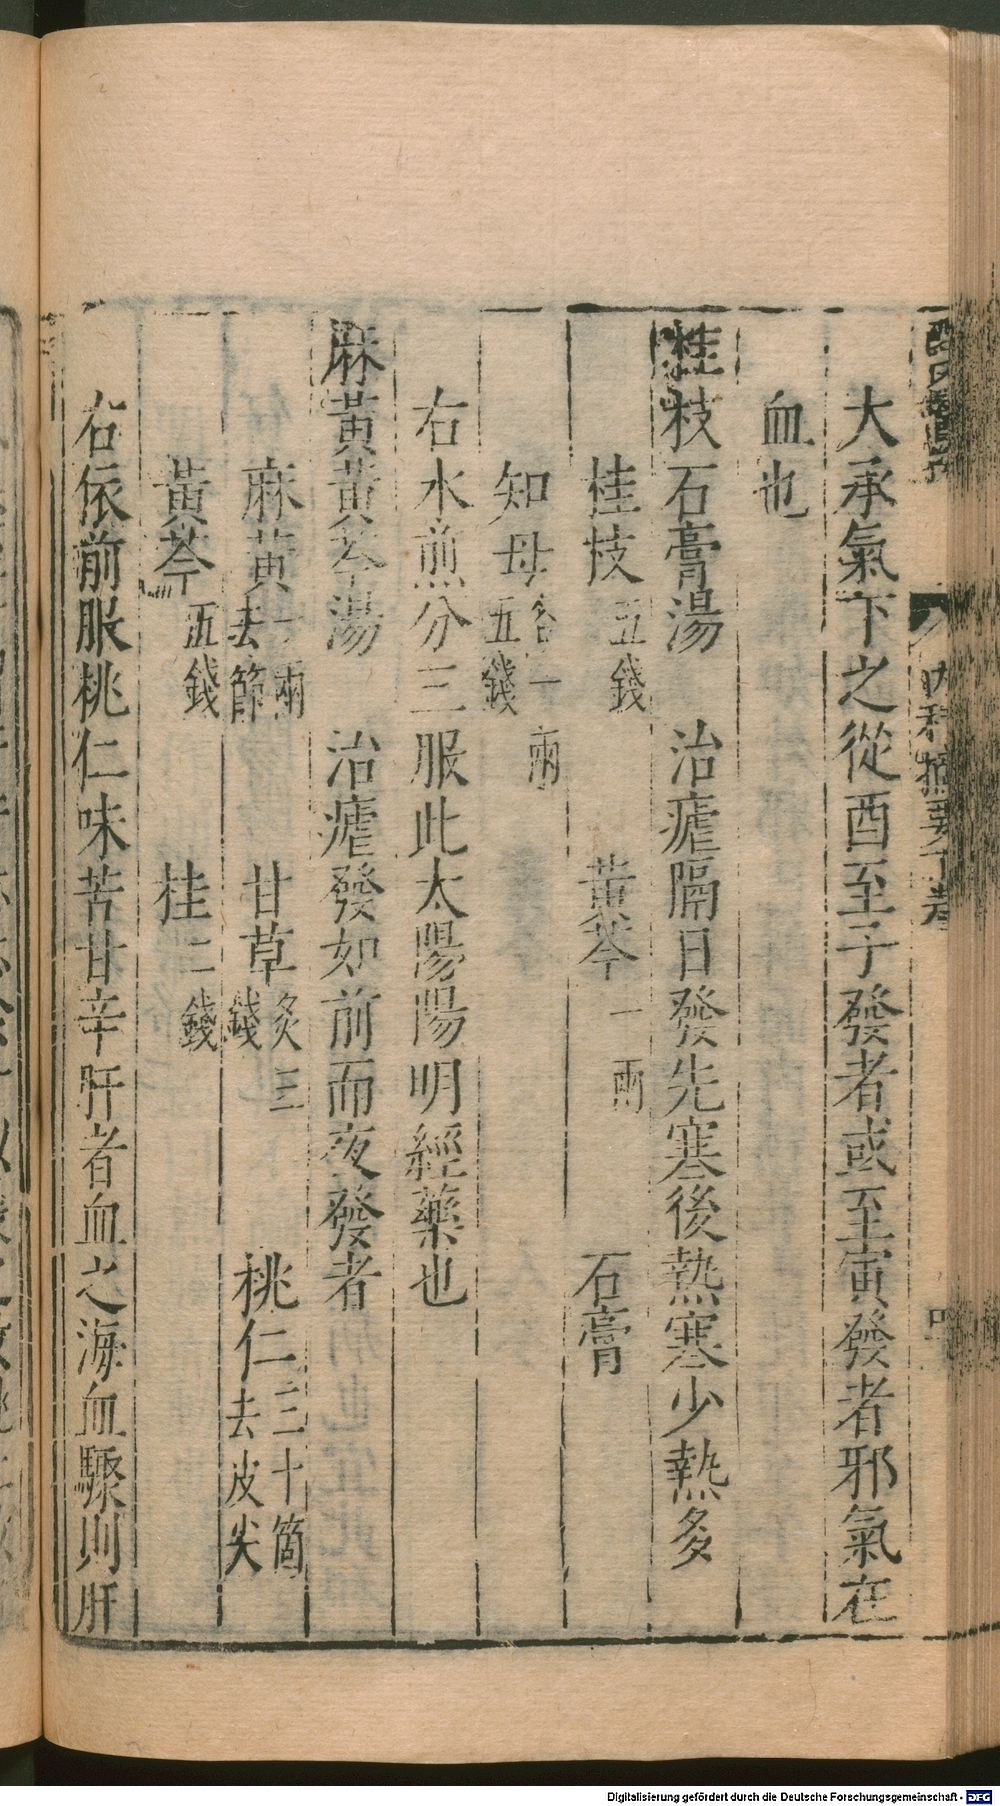 內科摘要下卷
大承氣下之從酉至子發者或至寅發者邪氣在
血也
桂枝石膏湯　治瘧隔日發先塞後熱塞少熱多
桂枝五錢　黃芩一兩　石膏
知母各一兩五錢
右水煎分三服此太陽陽明經藥也
麻黃黃芩湯　治瘧發如前而夜發者
麻黃一兩去節　甘草炙三錢　桃仁三十箇去皮尖
黃芩五錢　桂二錢
右依前服桃仁味苦甘辛肝者血之海血驟則肝
Digitalisierung gefördert durch die Deutsche Forschungsgemeinschaft - DFG